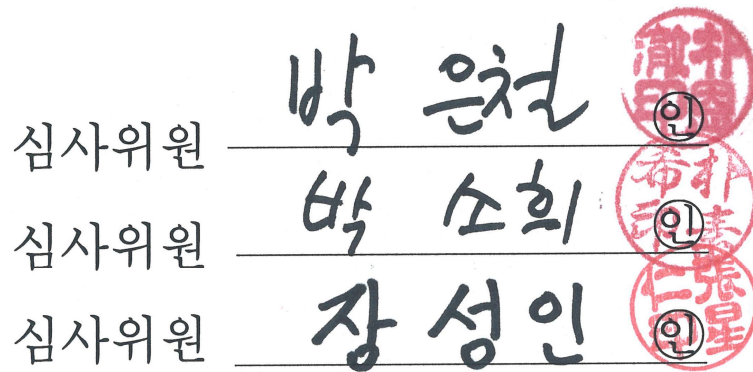 심사위원 박 은철 ㊞
심사위원 박 소희 ㊞
심사위원 장 성인 ㊞